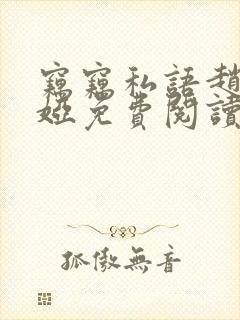 竊竊私語趙
婭免費閱讀
孤傲無音